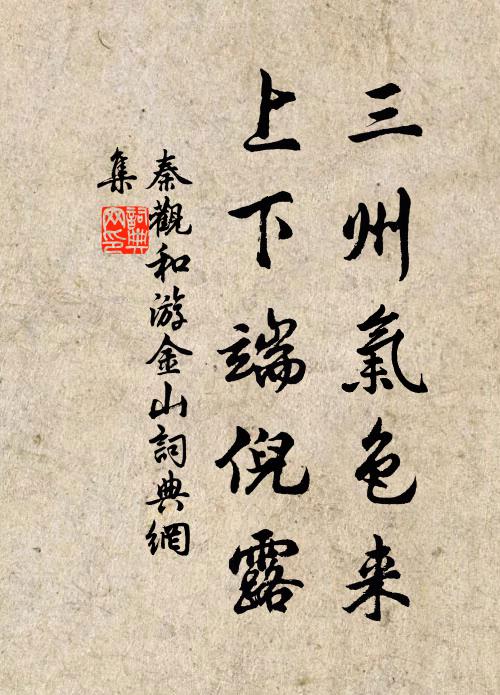 三州氣色来
上下端倪露
秦觀和游金山詞典網
集
詞典
网印